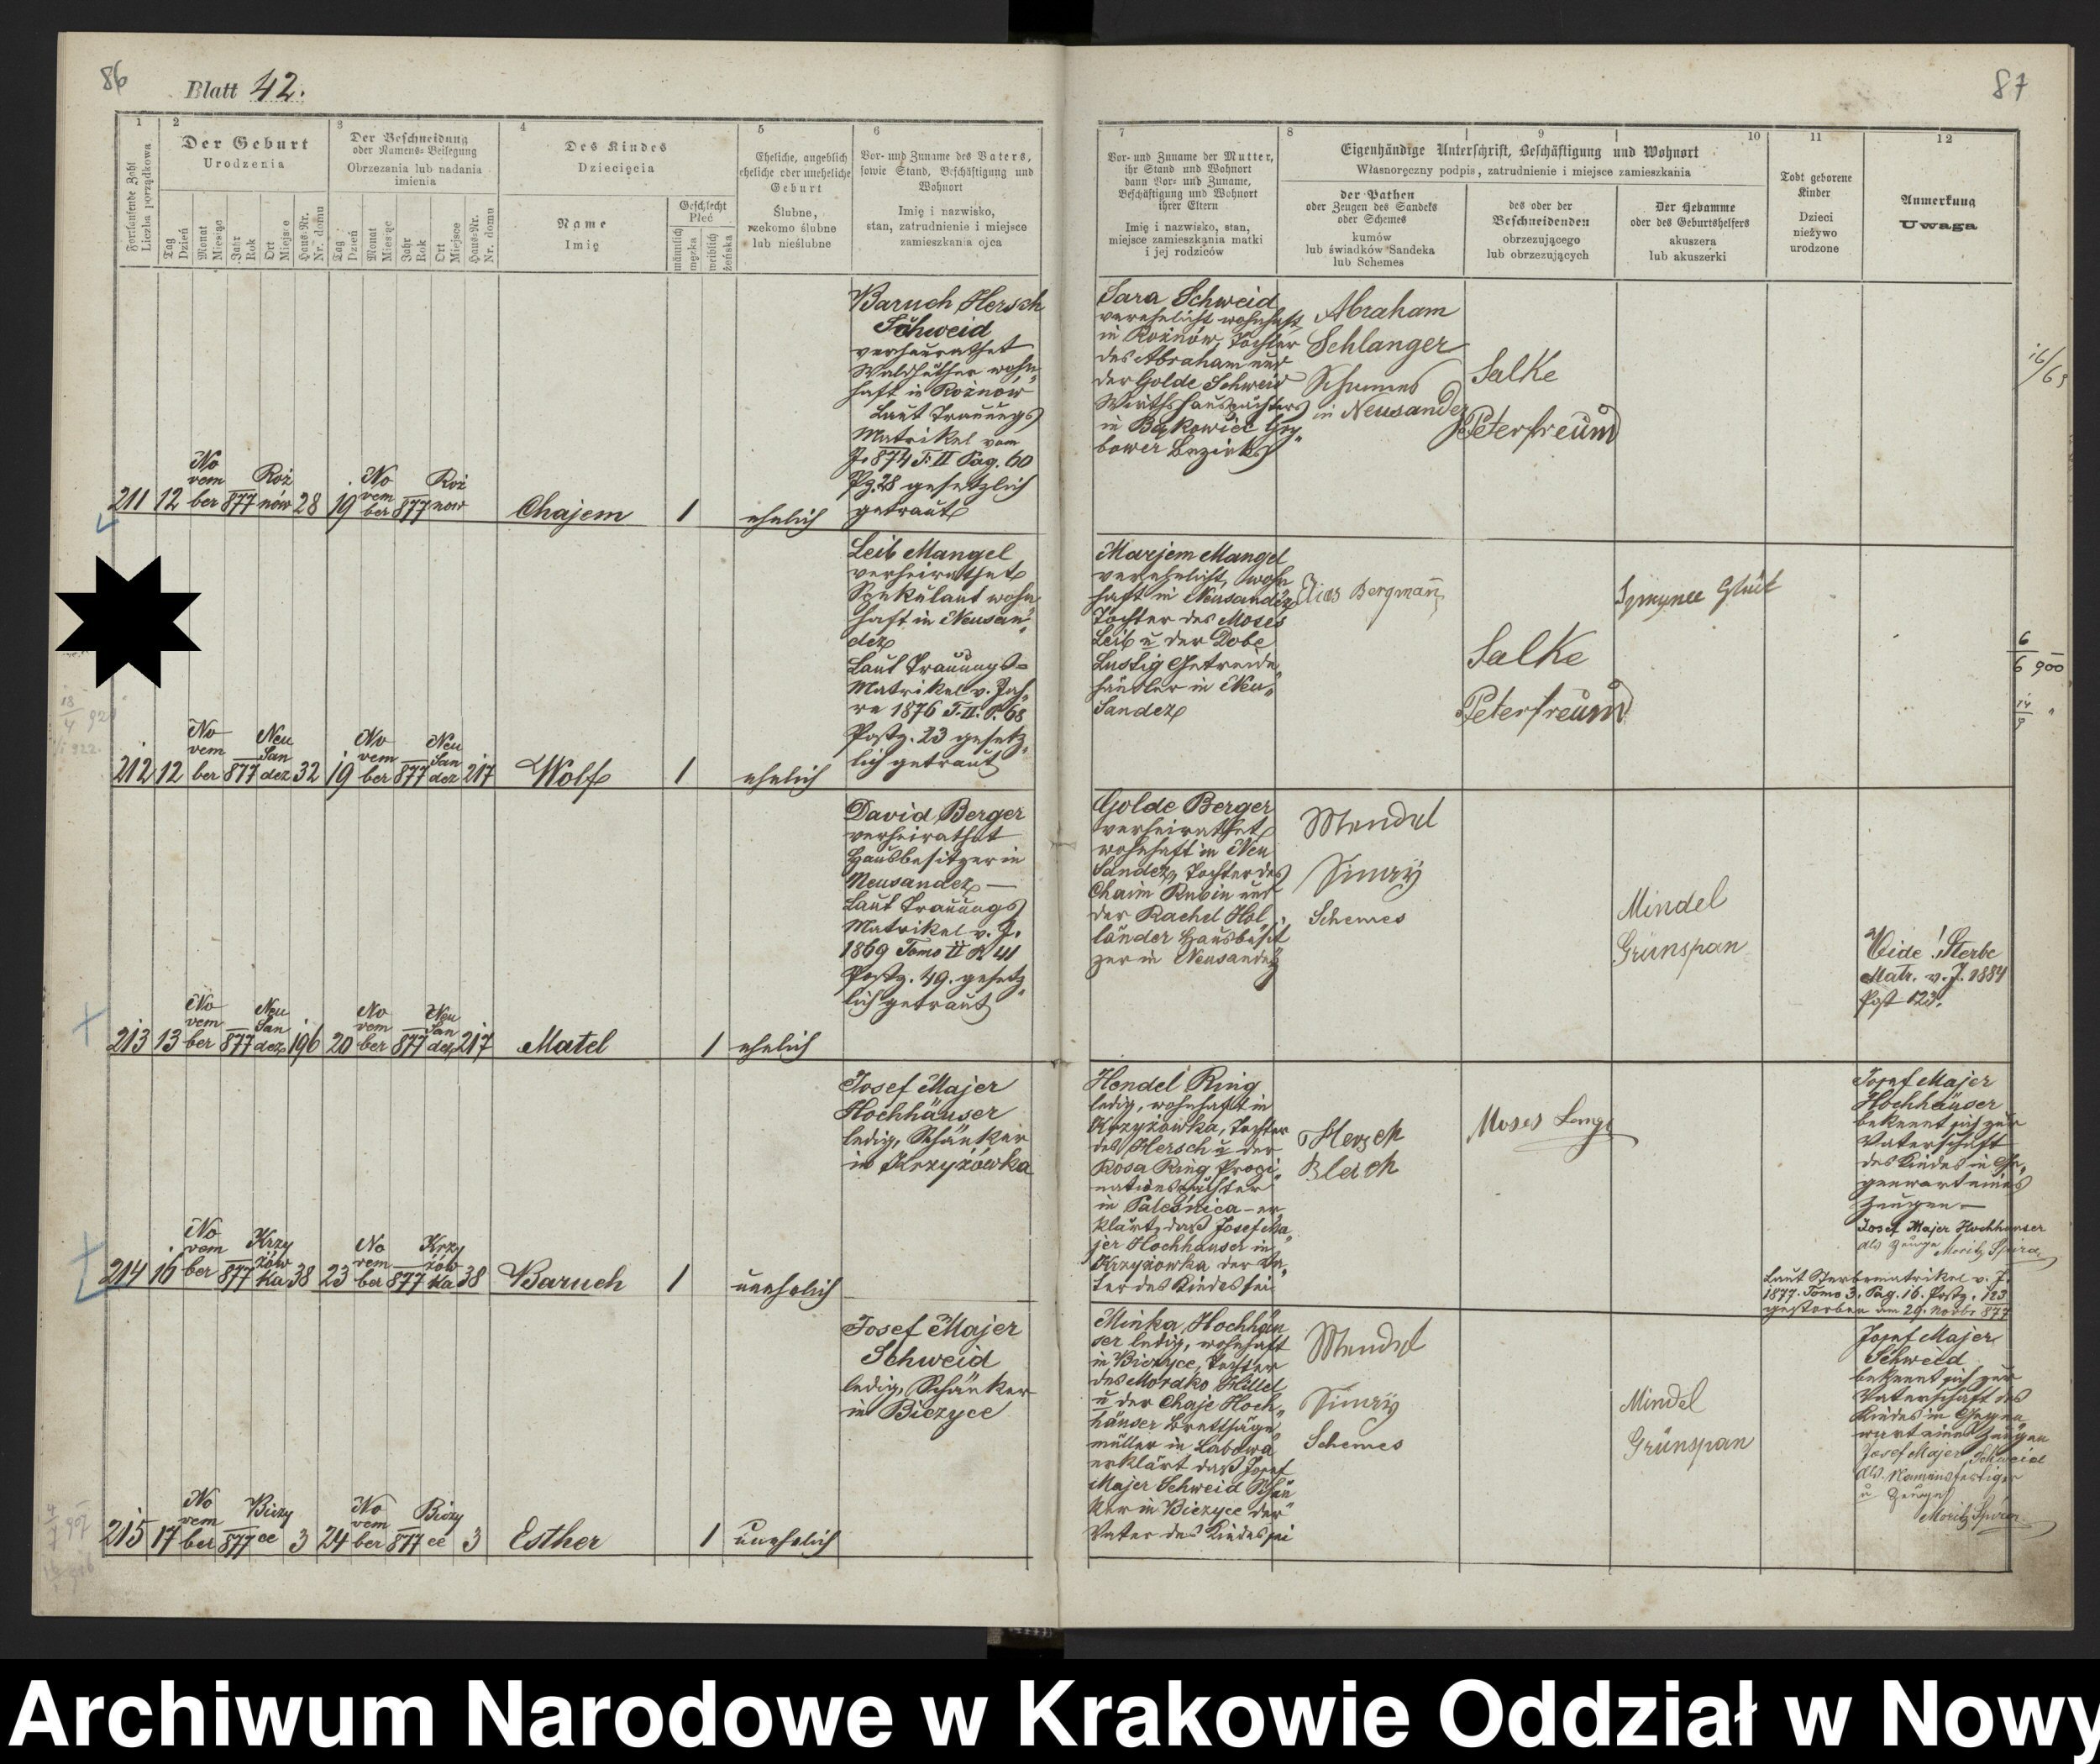 86
Blatt 42.
87
1
2
3
4
5
6
Fortlaufende Zahl
Liczba porządkowa
Der Geburt
Urodzenia
Der Beschneidung
oder Namens-Beilegung
Obrzezania lub nadania
imienia
Des Kindes
Dziecięcia
Eheliche, angeblich
eheliche oder uneheliche
Geburt
Ślubne,
rzekomo ślubne
lub nieślubne
Vor- und Zuname des Vaters,
sowie Stand, Beschäftigung und
Wohnort
Imię i nazwisko,
stan, zatrudnienie i miejsce
zamieszkania ojca
Tag
Dzień
Monat
Miesiąc
Jahr
Rok
Ort
Miejsce
Haus-Nr.
Nr. domu
Tag
Dzień
Monat
Miesiąc
Jahr
Rok
Ort
Miejsce
Haus-Nr.
Nr. domu
Name
Imię
Geschlecht
Płeć
männlich
męzka
weiblich
żeńska
7
8
9
10
11
12
Vor- und Zuname der Mutter,
ihr Stand und Wohnort
dann Vor- und Zuname,
Beschäftigung und Wohnort
ihrer Eltern
Imię i nazwisko, stan,
miejsce zamieszkania matki
i jej rodziców
Eigenhändige Unterschrift, Beschäftigung und Wohnort
Własnoręczny podpis, zatrudnienie i miejsce zamieszkania
der Pathen
oder Zeugen des Sandeks
oder Schemes
kumów
lub świadków Sandeka
lub Schemes
des oder der
Beschneidenden
obrzezującego
lub obrzezujących
Der Hebamme
oder des Geburtshelfers
akuszera
lub akuszerki
Todt geborene
Kinder
Dzieci
nieżywo
urodzone
Anmerkung
Uwaga
211 12 November 877 Rożnów 28 19 November 877 Rożnow
Chajem 1 ehelich
Baruch Hersch
Schweid
verheurathet
Waldhüther wohn„
haft in Rożnów
Laut Trauungs
Matrikel vom
J. 874 T. II Pag. 60
Pz. 28 gesetzlich
getraut
Sara Schweid
verehelicht wohnhaft
in Rożnów, Tochter
des Abraham und
der Golde Schweid
Wirthshauspächters
in Bąkowice Gry„
bower Bezirks
Abraham
Schlanger
Schumes
in Neusandez
Salke
Peterfreund
212 12 November 877 Neu Sandez 32 19 November 877 Neu Sandez 217
Wolf 1 ehelich
Leib Mangel
verheirathet
Spekulant wohn
haft in Neusan„
dez
Laut Trauungs-
Matrikel v. Jah„
re 1876 T. II. P. 68
Postz. 23 gesetz„
lich getraut
Marjem Mangel
verehelicht, wohn
haft in Neusandez
Tochter des Moses
Leib u der Dobe
Lustig Getreide„
händler in Neu„
Sandez
Elias Bergmann
Salke
Peterfreund
Glück
6
6 900
213 13 November 877 Neu Sandez 196 20 November 877 Neu Sandez 217
Matel 1 ehelich
David Berger
verheirathet
Hausbesitzer in
Neusandez —
Laut Trauungs
Matrikel v. J.
1869 Tomo II P. 41
Postz. 49. gesetz„
lich getraut
Golde Berger
verheirathet
wohnhaft in Neu
Sandez, Tochter des
Chaim Rubin und
der Rachel Hol„
länder Hausbesit
zer in Neusandez
Mendel
Schemes
Mindel
Grünspan
Vide! Sterbe
Matr. v. J. 1884
Post 123.
214 16 November 877 Krzyżówka 38 23 November 877 Krzyżówka 38
Baruch 1 unehelich
Josef Majer
Hochhäuser
ledig, Schänker
in Krzyżówka
Hendel Ring
ledig, wohnhaft in
Krzyżówka, Tochter
des Hersch u der
Rosa Ring Propi„
nationspächter
in Paleśnica - er„
klärt, daß Josef Ma„
jer Hochhäuser in
Krzyżowka der Va„
ter des Kindes sei
Hersch
Blech
Moses
Josef Majer
Hochhäuser
bekennt sich zur
Vaterschaft
des Kindes in Ge„
genwart eines
Zeugen —
Josef Majer Hochhauser
als Zeuge Moritz Spira
Laut Sterbematrikel v. J.
1877. Tomo 3. Pag. 16. Postz. 123
gestorben am 29. Novbr 877
215 17 November 877 Biczyce 3 24 November 877 Biczyce 3
Esther 1 unehelich
Josef Majer
Schweid
ledig, Schänker
in Biczyce
Minka Hochhäu
ser ledig, wohnhaft
in Biczyce, Tochter
des Mordko Hillel
u der Chaje Hoch„
häuser Brettsäge„
müller in Łabowa
erklärt daß Josef
Majer Schweid Schän
ker in Biczyce der
Vater des Kindes sei
Mendel
Schemes
Mindel
Grünspan
Josef Majer
Schweid
bekennt sich zur
Vaterschaft des
Kindes in Gegen
wart eines Zeugen
Josef Majer Schweid
als Namensfertiger
u Zeuge
Moritz Spira
Archiwum Narodowe w Krakowie Oddział w Nowy